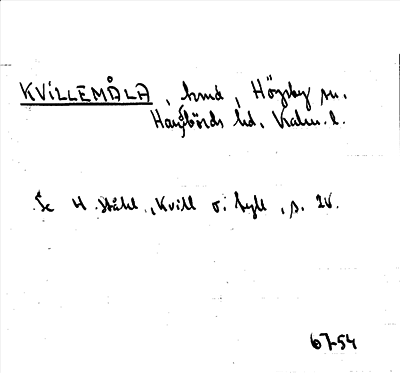 KVILLEMÅLA, hmd, Högsby sn.
Handbörds hd. Kalm. l.
Se H. Ståhl, Kvill o. tyll, s. 20.
67-54